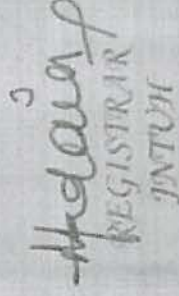 REGISTRAR
JNTUH